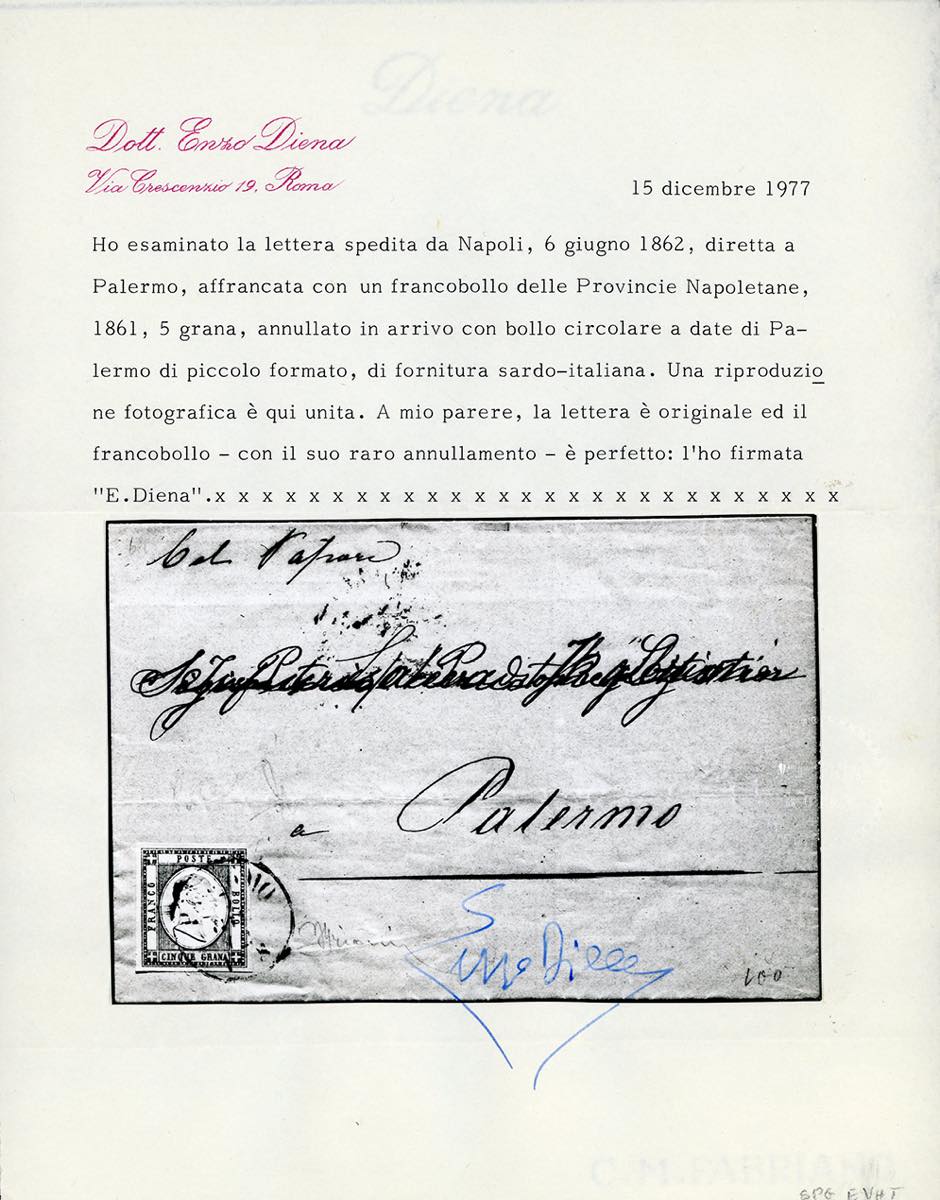 Diena
Dott. Enzo Diena
Via Crescenzio 19, Roma
15 dicembre 1977
Ho esaminato la lettera spedita da Napoli, 6 giugno 1862, diretta a
Palermo, affrancata con un francobollo delle Provincie Napoletane,
1861, 5 grana, annullato in arrivo con bollo circolare a date di Pa-
lermo di piccolo formato, di fornitura sardo-italiana. Una riproduzio
ne fotografica è qui unita. A mio parere, la lettera è originale ed il
francobollo - con il suo raro annullamento - è perfetto: l'ho firmata
"E.Diena".x x x x x x x x x x x x x x x x x x x x x x x x x x x
Col Vapore
a Palermo
POSTE
FRANCO
BOLLO
CINQUE GRANA
Enzo Diena
100
C.M. FABRIANO